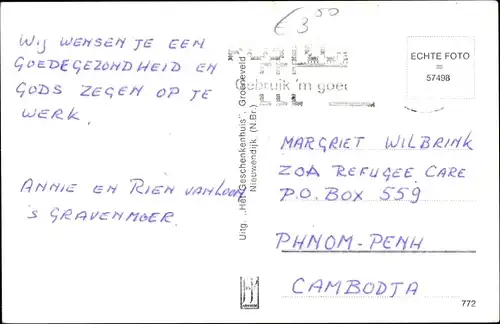 € 3 50
WIJ WENSEN JE EEN
GOEDEGEZONDHEID EN
GODS ZEGEN OP JE
WERK.
ANNIE EN RIEN VAN LOON
'S GRAVENMOER.
Uitg. „Het Geschenkenhuis", Groeneveld
Nieuwendijk (N.Br.)
Gebruik 'm goed
ECHTE FOTO
57498
MARGRIET WILBRINK
ZOA REFUGEE CARE
P.O. BOX 559
PHNOM-PENH
CAMBODJA
772